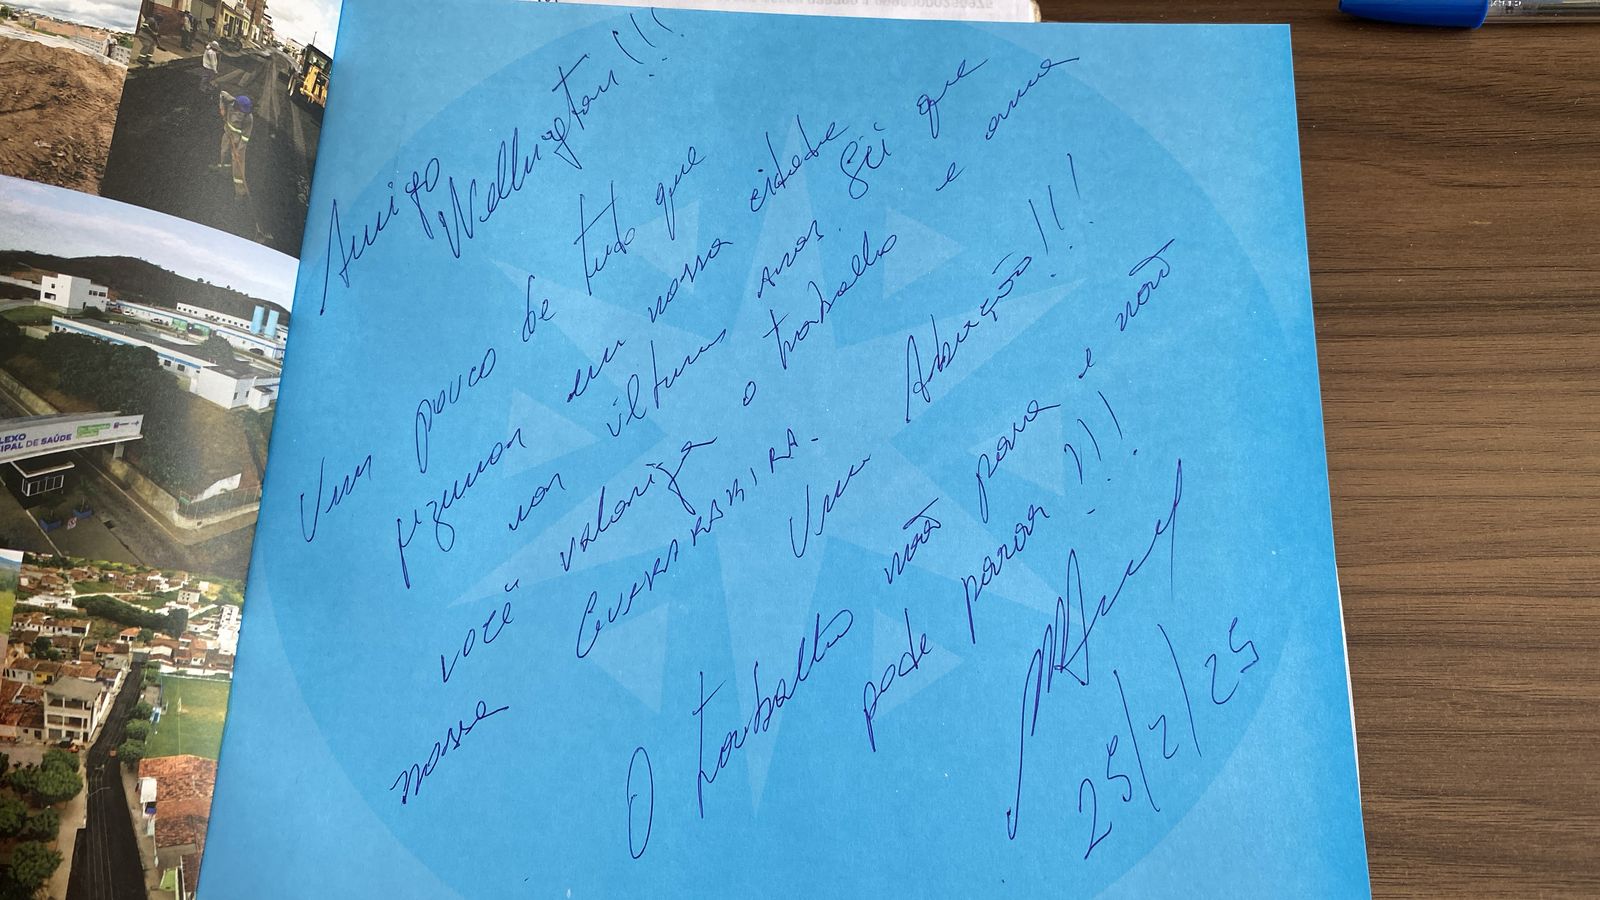 Amigo
Wellington!!!
Um pouco de tudo que
fizemos em nossa cidade
nos últimos anos. Sei que
você valoriza o trabalho e ama
nossa GUARABIRA.
Um Abração!!!
O trabalho não para e não
pode parar!!!
25/2/25
LEXO
IPAL DE SAÚDE